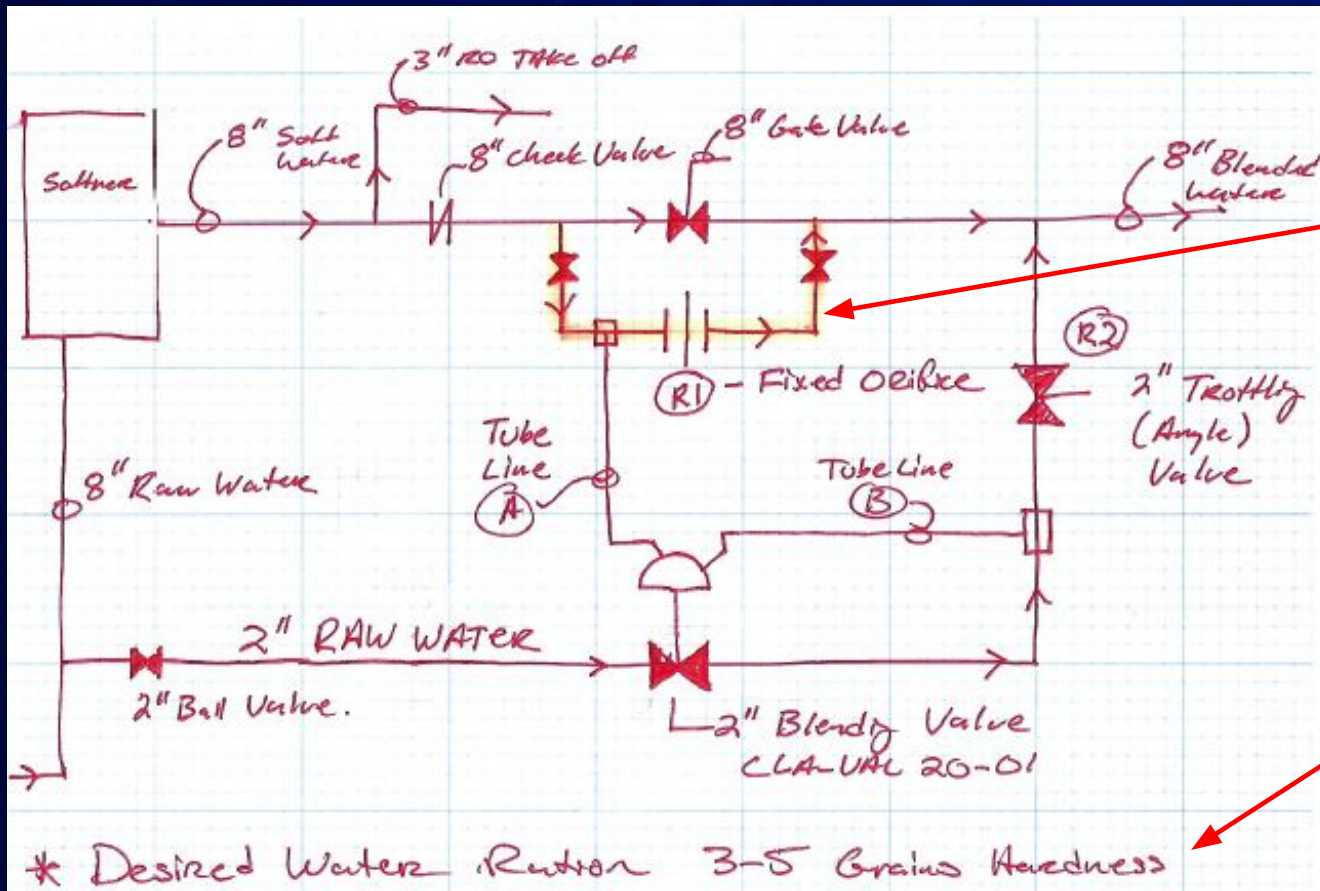 3" RO TAKE off
8" Soft
Water
8" Check Valve
8" Gate Valve
8" Blended
Water
Softner
R1 - Fixed Orifice
R2
2" Trottlig
(Angle)
Valve
Tube
Line
A
Tube Line
B
8" Raw Water
2" RAW WATER
2" Ball Valve.
2" Blendig Valve
CLA-VAL 20-01
* Desired Water Ration 3-5 Grains Hardness